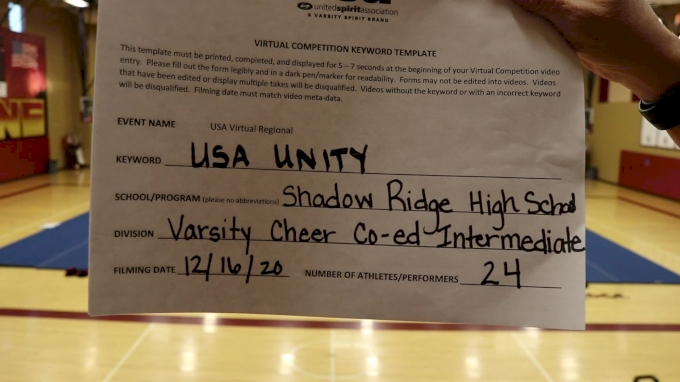 unitedspiritassociation
A VARSITY SPIRIT BRAND
VIRTUAL COMPETITION KEYWORD TEMPLATE
This template must be printed, completed, and displayed for 5 – 7 seconds at the beginning of your Virtual Competition video
entry. Please fill out the form legibly and in a dark pen/marker for readability. Forms may not be edited into videos. Videos
that have been edited or display multiple takes will be disqualified. Videos without the keyword or with an incorrect keyword
will be disqualified. Filming date must match video meta-data.
EVENT NAME USA Virtual Regional
KEYWORD USA UNITY
SCHOOL/PROGRAM (please no abbreviations) Shadow Ridge High School
DIVISION Varsity Cheer Co-ed Intermediate
FILMING DATE 12/16/20 NUMBER OF ATHLETES/PERFORMERS 24